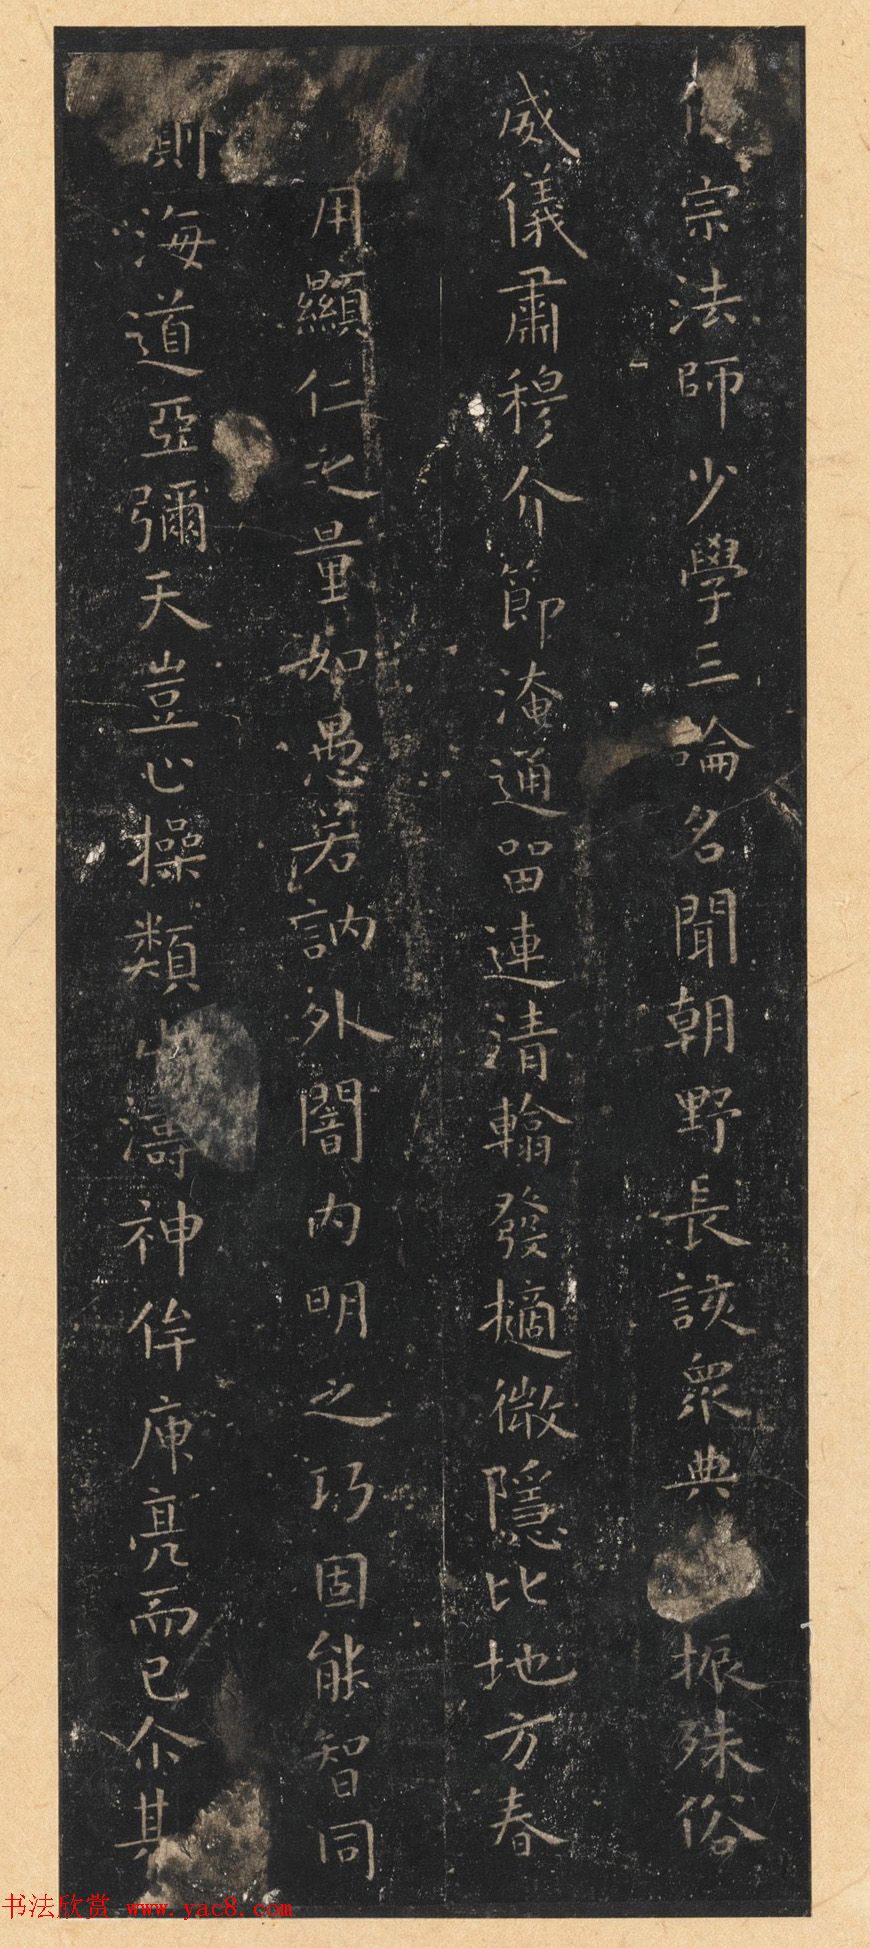 宗法師少學三論名聞朝野長該衆典振殊俗
威儀肅穆介節淹通留連清翰發擿微隱比地方春
用顯仁之量如愚若訥外闇內明之巧固能智同
測海道亞彌天豈止操類山濤神侔庾亮而已尒其
书法欣赏 www.yac8.com